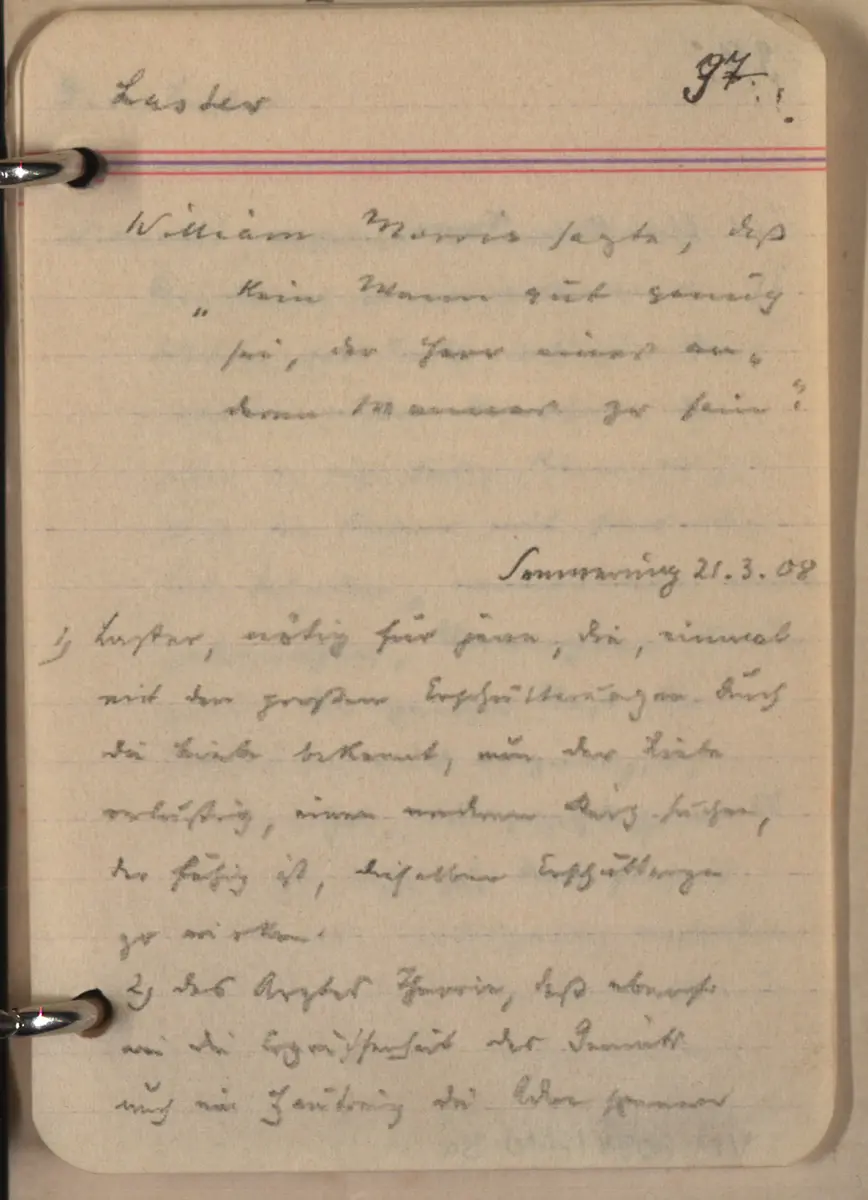 Laster
97.
William Morris sagte, daß
„Kein Mann gut genug
sei, der Herr eines an-
deren Mannes zu sein“.
Semmering 21.3.08
1) Laster, nötig für jene, die, einmal
mit den großen Erschütterungen durch
die Liebe bekannt, nun der Liebe
verlustig, einen anderen Reiz suchen,
der fähig ist, dieselben Erschütterungen
zu wirken.
2) des Arztes Theorie, daß ebenso
wie die Ergriffenheit des Gemüts
auch ein Hautreiz die